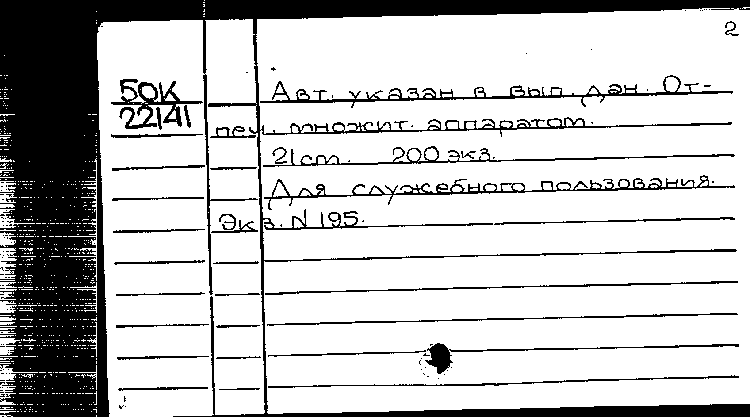 2
50К Авт. указан в вып. дан. От-
22141 печ. множит. аппаратом.
21 cm. 200 экз.
Для служебного пользования.
Экз. N 195.